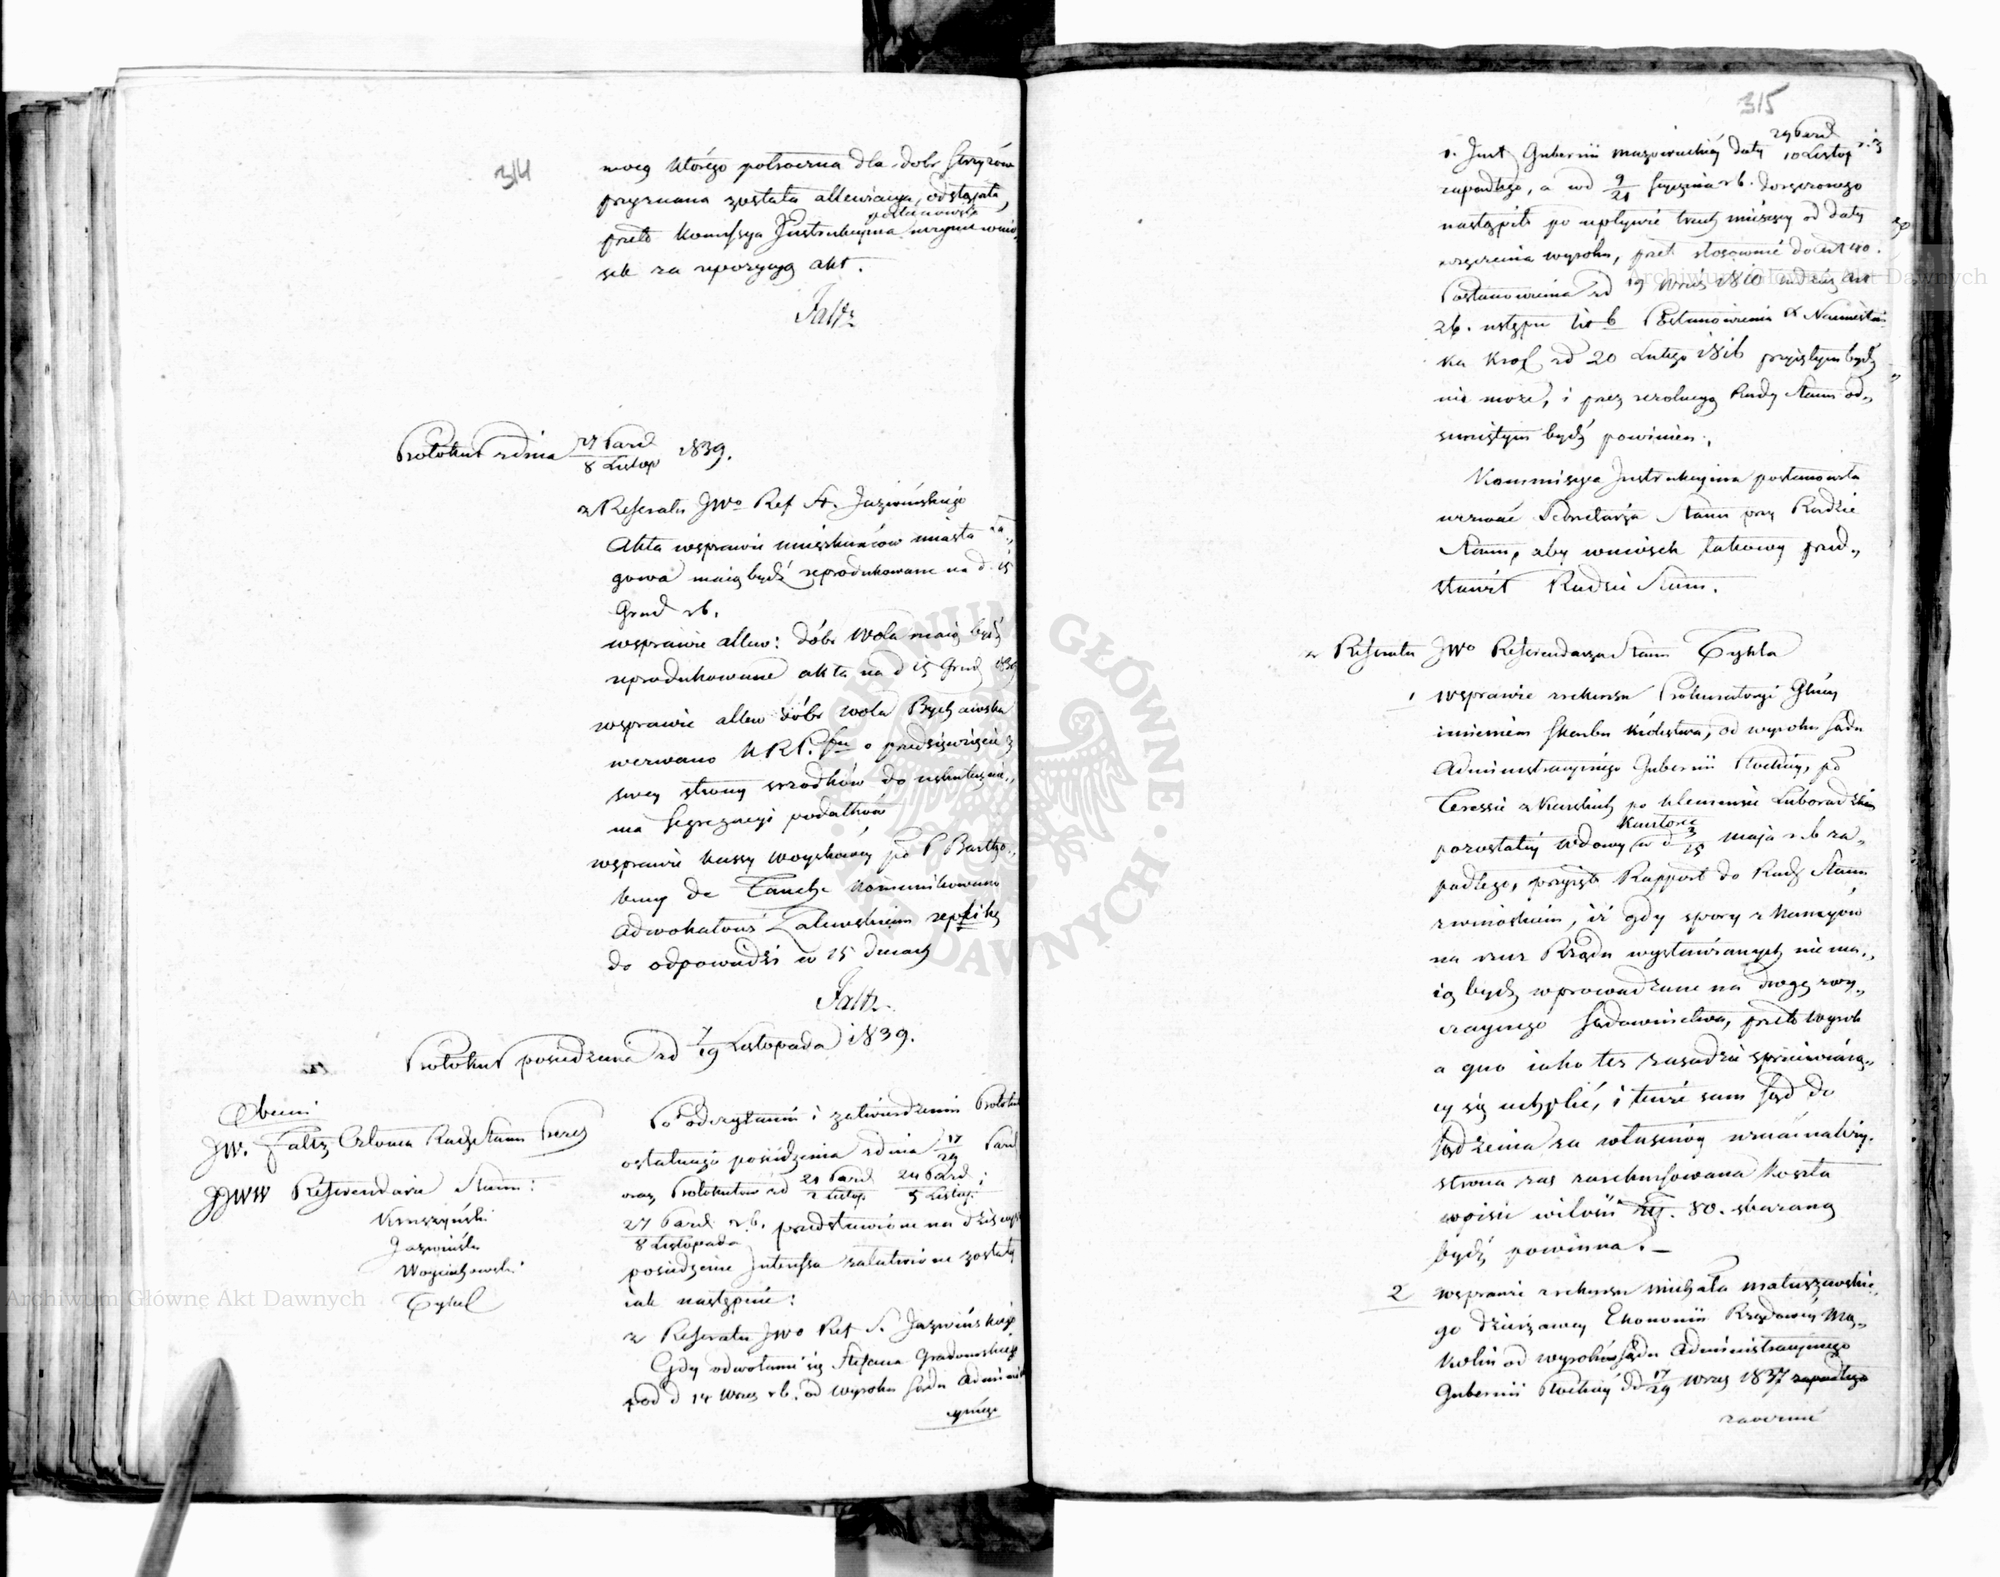 314
mocą którego potrącona dla dobr
przyznana została allewiacya, odstąpiła,
przeto Komissya Instrukcyjna postanowiła
sek za reporzycyą akt.
Faltz
Protokuł z dnia 27 Paźd / 8 Listop 1839.
z Referatu JWo Ref St. Jazwińskiego
Akta wsprawie mieszkańców miasta
gowa maią być reprodukowane na d. 15
Grud rb.
wsprawie allew: dóbr Wola maią być
reprodukowane akta na d 15 Grud 1839
wsprawie allew dóbr Wola Bychawska
wezwano K R P. o przedsięwzięcie z
swey strony srzodków do uskutecznie„
nia segregacyi podatków
wsprawie kassy woyskowey po P Bartło„
Adwokatowi Zalewskiemu replikę
do odpowiedzi w 15 dniach
Faltz.
Protokuł posiedzenia z d 7/19 Listopada 1839.
Obecni
JW. Faltz Członek Rady Stanu Prezes
JJWW Referendarze Stanu:
Kruszyński
Jazwiński
Woyciechowski
Tykel
Po odczytaniu i zatwierdzeniu Protokułu
ostatniego posiedzenia z dnia 17/29 Paźd
oraz Protokułów z d 21 Paźd / 2 Listop 24 Paźd / 5 Listop i
27 Paźd / 8 Listopada r.b. przedstawione na dzisieysze
posiedzenie Interessa załatwione zostały
iak następuie:
z Referatu JWo Ref S. Jazwińskiego
Gdy odwołanie się Stefana Gradowskiego
pod d 14 Wrzes rb. od wyroku Sądu Administra
cyinego
315
Gubernii Mazowieckiey daty 29 Paźd / 10 Listop
zapadłego, a w d 9/21 Stycznia rb. doręczonego
nastąpiło po upływie trzech miesięcy od daty
doręczenia wyroku, przeto stosownie do art 40.
Postanowienia z d 19 Wrześ 1810 tudzież art
26. ustępu lit b Postanowienia X Namiestni
ka Krol z d 20 Lutego 1816 przyiętym bydź
nie może, i przez rezolucyą Rady Stanu od„
suniętym bydź powinien.
Kommissya Instrukcyina postanowiła
wezwać Sekretarza Stanu przy Radzie
Stanu, aby wniosek takowy przed„
stawił Radzie Stanu.
z Referatu JWo Referendarza Stanu Tykla
1 wsprawie rekursu Prokuratoryi Głney
imieniem Skarbu Królestwa, od wyroku Sądu
Administracyinego Gubernii Płockiey, po
Teressie z Karskich po Klemensie Luboradzkim
pozostałey wdowy w d 3/15 Maja r.b za„
padłego, przyięto Rapport do Rady Stanu
z wnioskiem, iż gdy spory z kaucyów
na rzecz Rządu wystawianych nie ma„
ią bydź wprowadzane na drogę zwy„
czaynego Sądownictwa, przeto wyrok
a quo iako tey zasadzie sprzeciwiaią„
cy się uchylić, i tenże sam Sąd do
sądzenia za właściwy uznać należy.
strona zaś zarekursowana koszta
wpisu w ilości złp. 80. skazaną
bydź powinna. —
2 wsprawie rekursu Michała Matuszewskie„
go dzierzawcy Ekonomii Rządowey Ma„
kolin od wyroku Sądu Administracyinego
Gubernii Płockiey d 17/29 Wrześ 1837 zapadłego
zaocznie
Archiwum Główne Akt Dawnych
Archiwum Główne Akt Dawnych
ARCHIWUM GŁÓWNE · AKT DAWNYCH ·